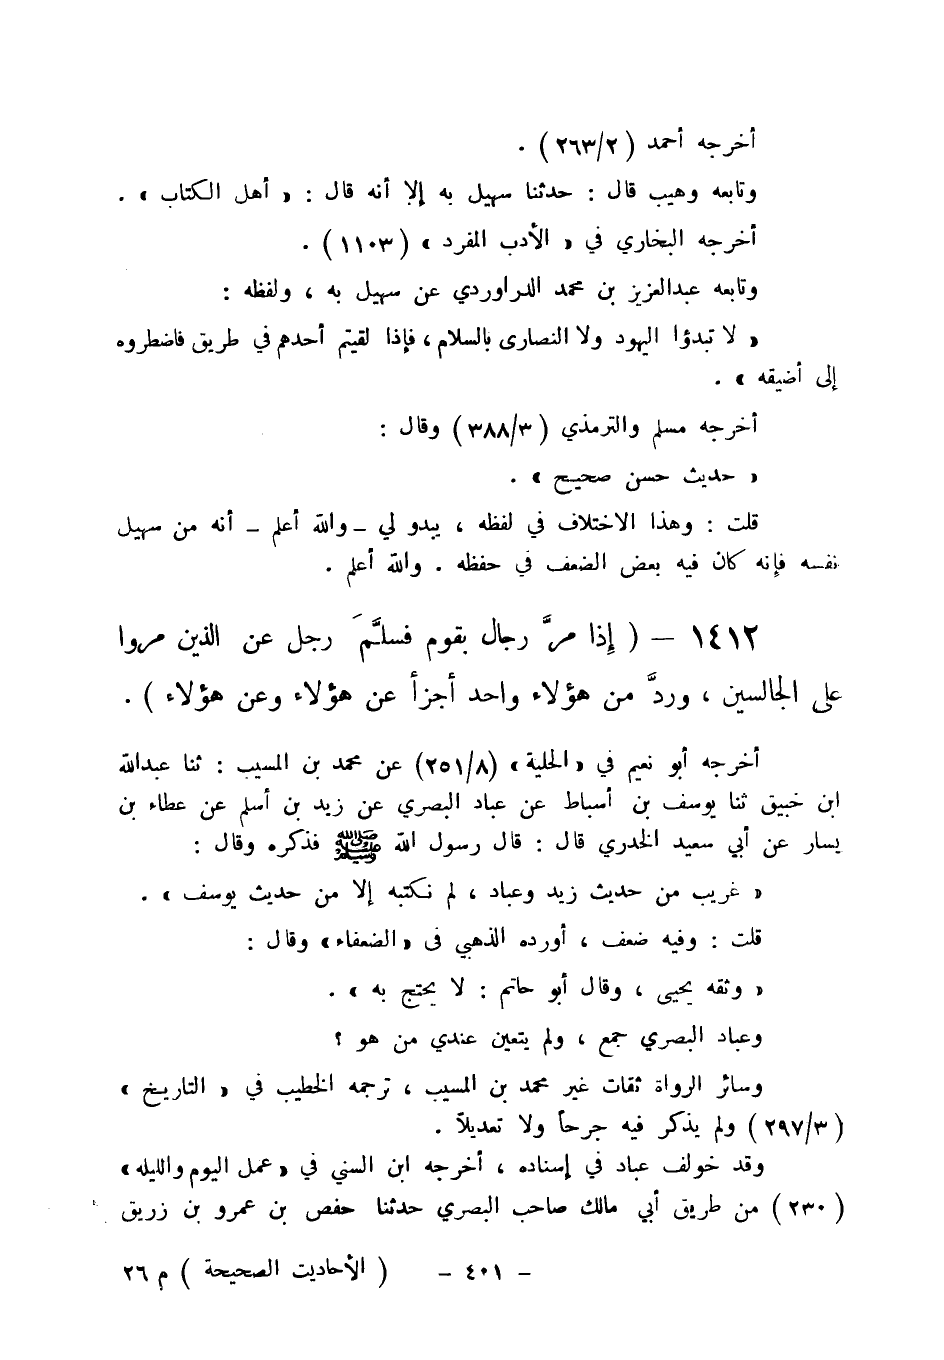 أخرجه أحمد ( ٢٦٣/٢ ) .
وتابعه وهيب قال : حدثنا سهيل به إلا أنه قال : « أهل الكتاب » .
أخرجه البخاري في « الأدب المفرد » ( ١١٠٣ ) .
وتابعه عبدالعزيز بن محمد الدراوردي عن سهيل به ، ولفظه :
« لا تبدؤا اليهود ولا النصارى بالسلام ، فإذا لقيتم أحدهم في طريق فاضطروه
إلى أضيقه » .
أخرجه مسلم والترمذي ( ٣٨٨/٣ ) وقال :
« حديث حسن صحيح » .
قلت : وهذا الاختلاف في لفظه ، يبدو لي ــ والله أعلم ــ أنه من سهيل
نفسه فإنه كان فيه بعض الضعف في حفظه . والله أعلم .
١٤١٢ ــ ( إذا مرَّ رجال بقوم فسلَّمَ رجل عن الذين مروا
على الجالسين ، وردَّ من هؤلاء واحد أجزأ عن هؤلاء وعن هؤلاء ) .
أخرجه أبو نعيم في «الحلية» (٢٥١/٨) عن محمد بن المسيب : ثنا عبدالله
ابن خبيق ثنا يوسف بن أسباط عن عباد البصري عن زيد بن أسلم عن عطاء بن
يسار عن أبي سعيد الخدري قال : قال رسول الله ﷺ فذكره وقال :
« غريب من حديث زيد وعباد ، لم نكتبه إلا من حديث يوسف » .
قلت : وفيه ضعف ، أورده الذهبي فى «الضعفاء» وقال :
« وثقه يحيى ، وقال أبو حاتم : لا يحتج به » .
وعباد البصري جمع ، ولم يتعين عندي من هو ؟
وسائر الرواة ثقات غير محمد بن المسيب ، ترجمه الخطيب في « التاريخ »
( ٢٩٧/٣ ) ولم يذكر فيه جرحاً ولا تعديلاً .
وقد خولف عباد في إسناده ، أخرجه ابن السني في «عمل اليوم والليله»
( ٢٣٠ ) من طريق أبي مالك صاحب البصري حدثنا حفص بن عمرو بن زريق
- ٤٠١ - ( الأحاديث الصحيحة ) م ٢٦